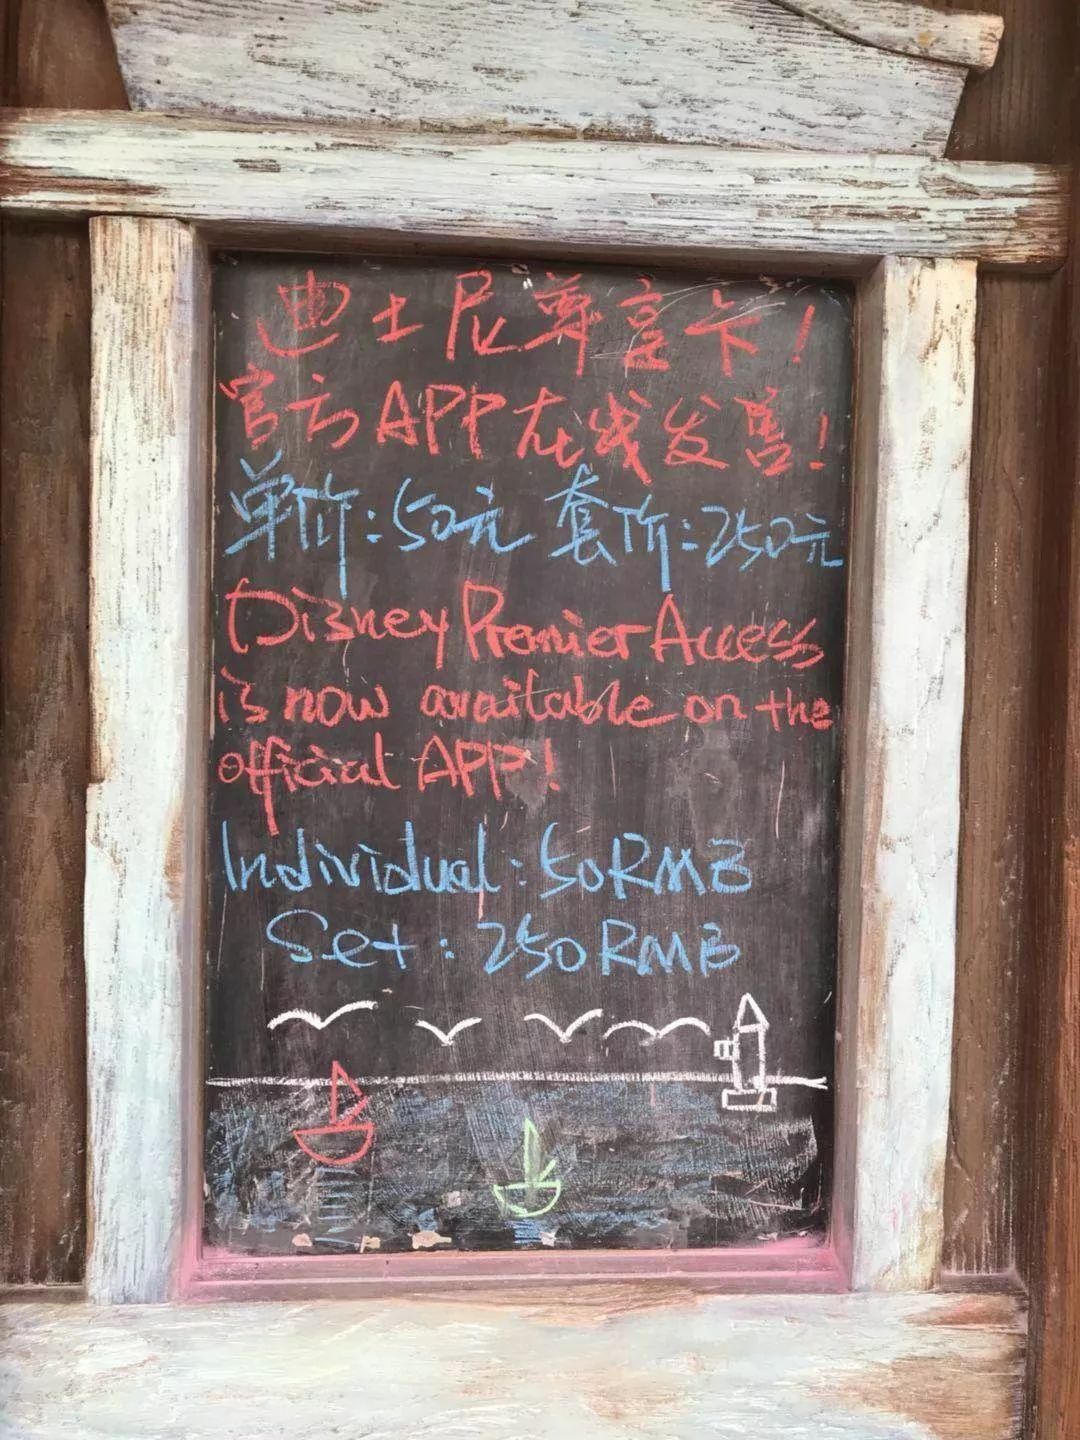 迪士尼尊享卡!
官方APP在线发售!
单价:50元 套价:250元
Disney Premier Access
is now available on the
official APP!
Individual: 50RMB
Set: 250RMB